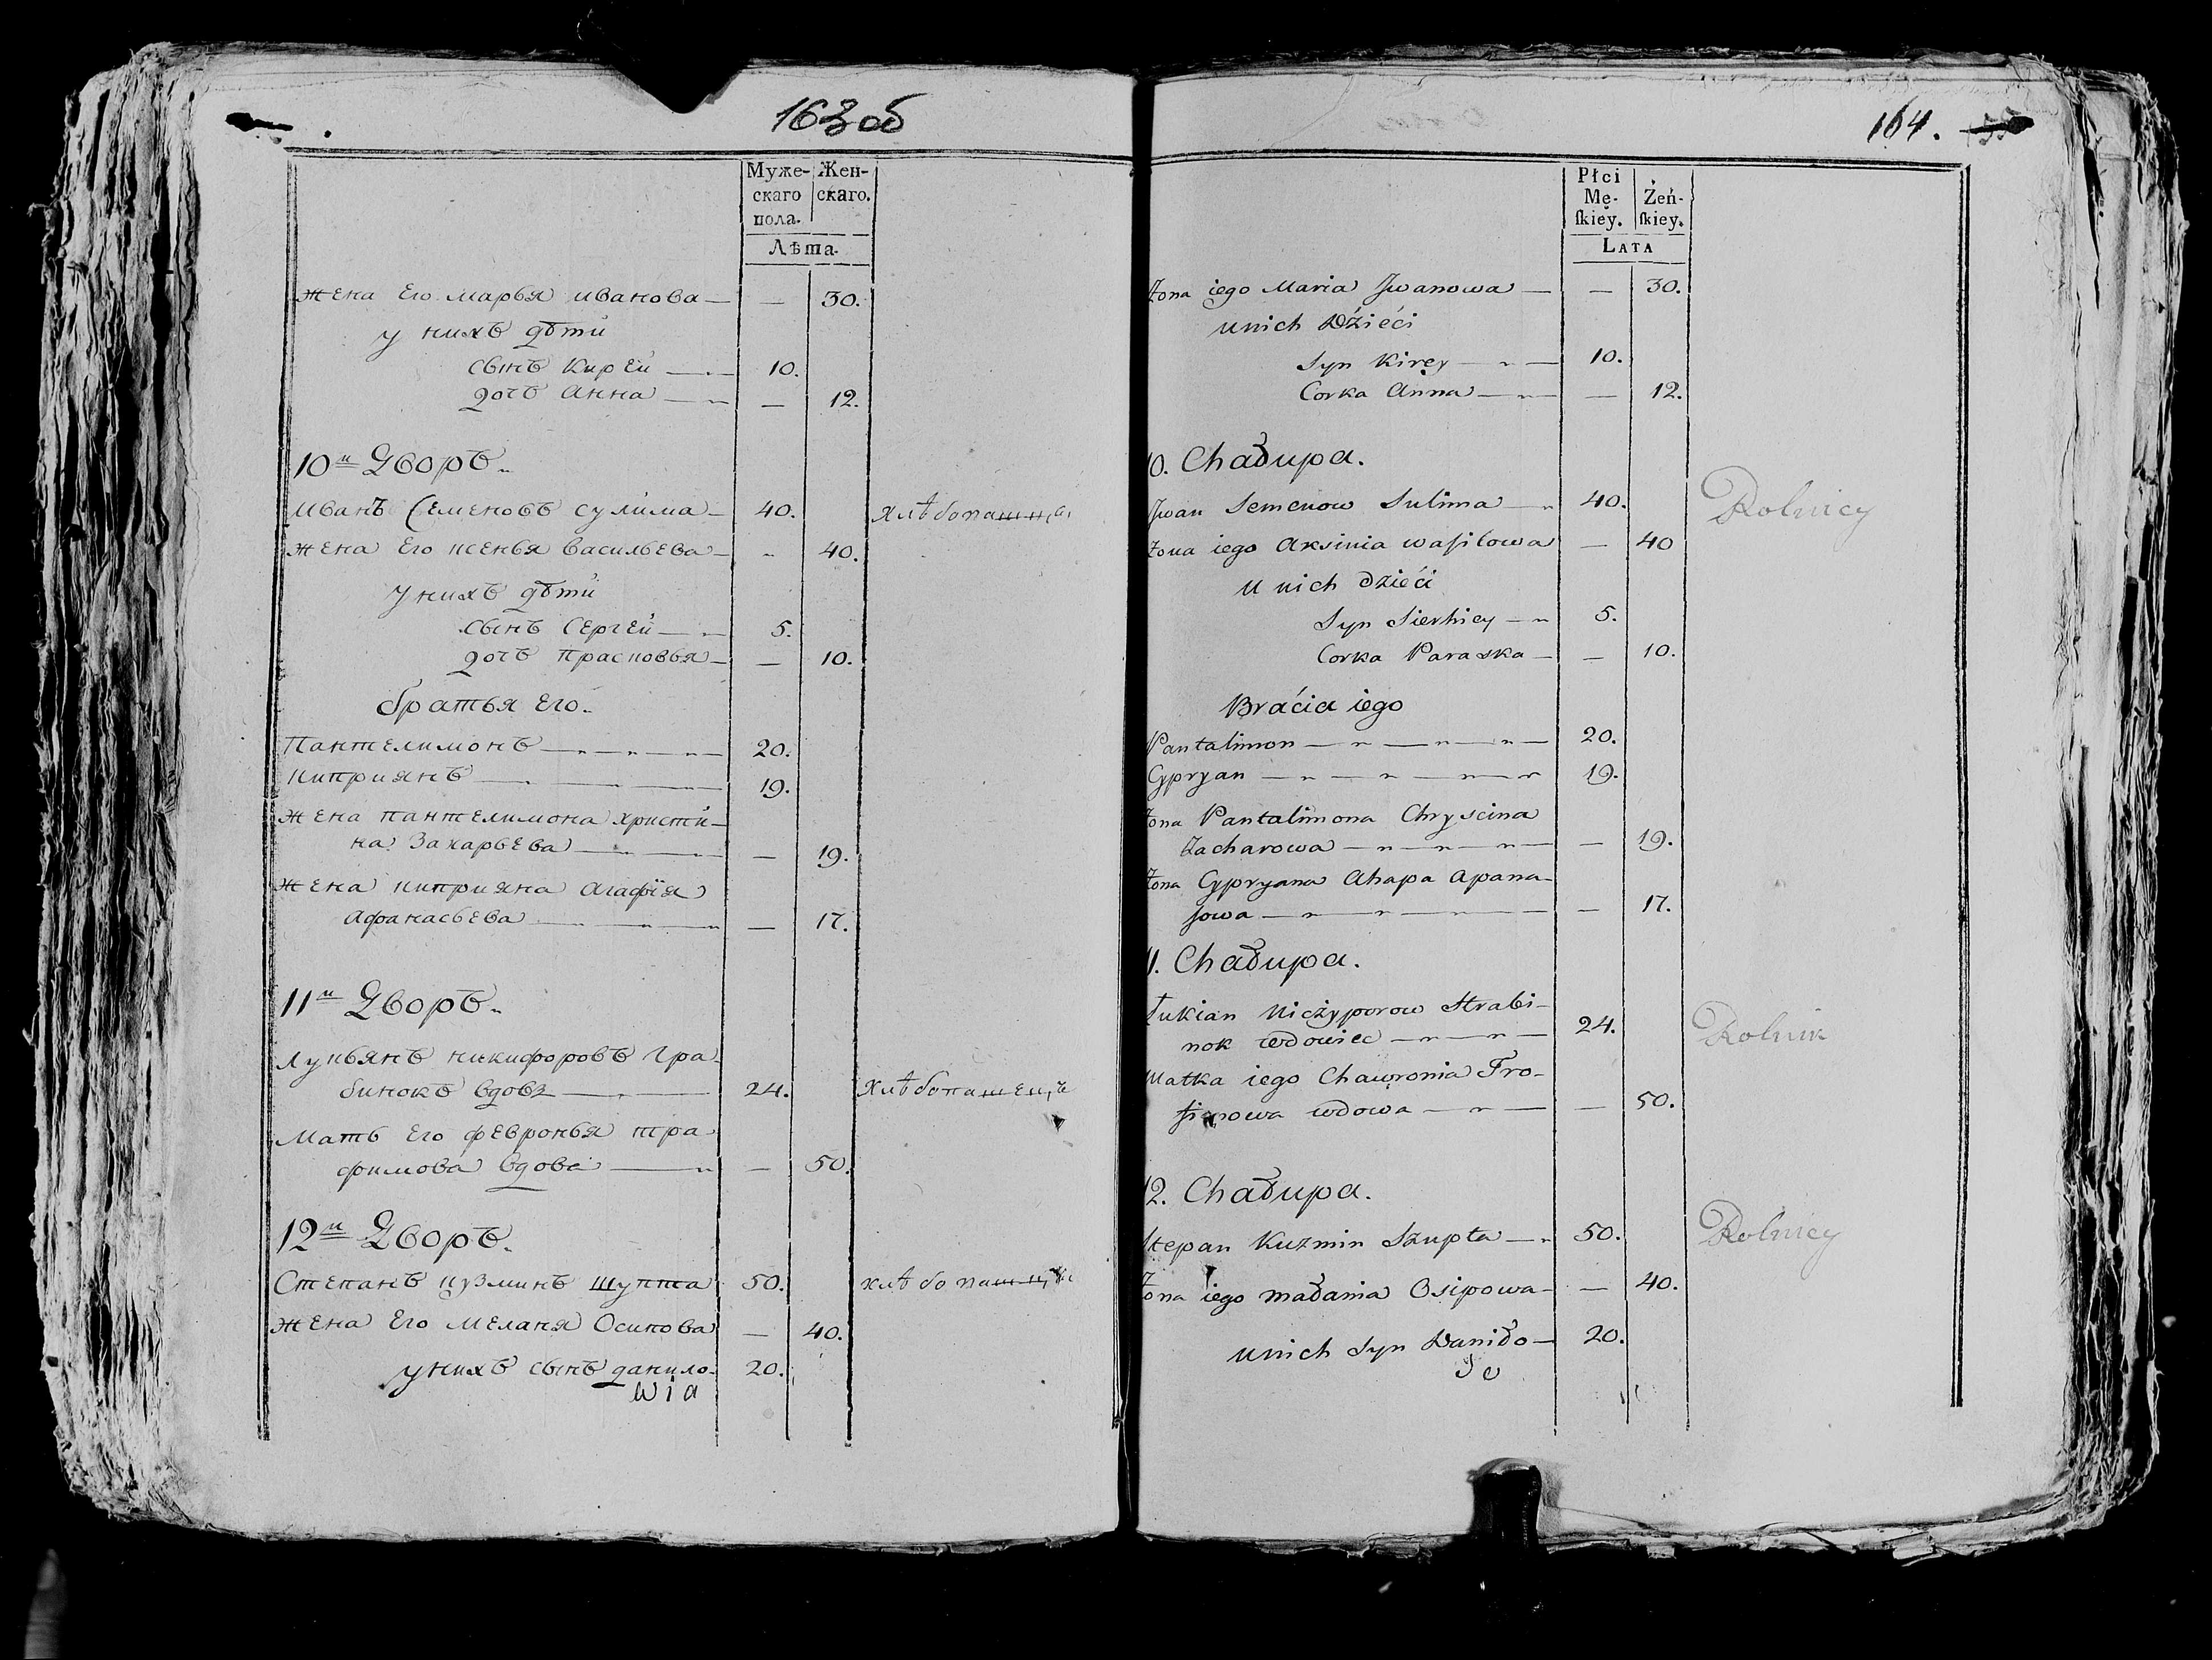 163 об
Муже- Жен-
скаго скаго.
пола.
Лѣта.
Жена Его марья иванова — — 30.
у нихъ дѣти
сынъ Кирѣй — 10.
дочь Анна — — 12.
10й Дворъ.
Иванъ Семеновъ сулима — 40. хлѣбопашцы
Жена Его ксенья васильева — „ 40.
у нихъ дѣти
сынъ Сергей — 5.
дочь прасковья — — 10.
братья Его.
Пантелимонъ — 20.
Киприянъ — 19.
Жена пантелимона христи-
на Захарьева — — 19.
Жена киприяна агафія
Афанасьева — — 17.
11й Дворъ.
Лукьянъ никифоровъ Гра-
бинокъ вдовъ — 24. хлѣбопашецъ
Мать Его февронья тра-
фимова вдова — — 50.
12й Дворъ.
Степанъ кузминъ шупта 50. хлѣбопашцы
Жена Его меланя Осипова — 40.
у нихъ сынъ данило 20.
wia
164.
Płci
Mę- Żeń-
skiey. skiey.
LATA
Żona iego Maria Jwanowa — — 30.
unich Dźieći
Syn Kirey — 10.
Corka Anna — — 12.
10. Chałupa.
Jwan Semenow Sulima — 40. Rolnicy
Żona iego Aksinia wasilowa — 40
u nich dzieći
Syn Sierhiey — 5.
Corka Paraska — — 10.
Braćia iego
Pantalimon — 20.
Cypryan — 19.
Żona Pantalimona Chryscina
Zacharowa — — 19.
Żona Cypryana Ahapa Apana-
sowa — — 17.
11. Chałupa.
Łukian Niczyporow Hrabi-
nok wdowiec — 24. Rolnik
Matka iego Chawronia Tro-
wdowa — — 50.
12. Chałupa.
Stepan Kuzmin Szupta — 50. Rolnicy
Żona iego Małania Osipowa — — 40.
unich Syn Daniło — 20.